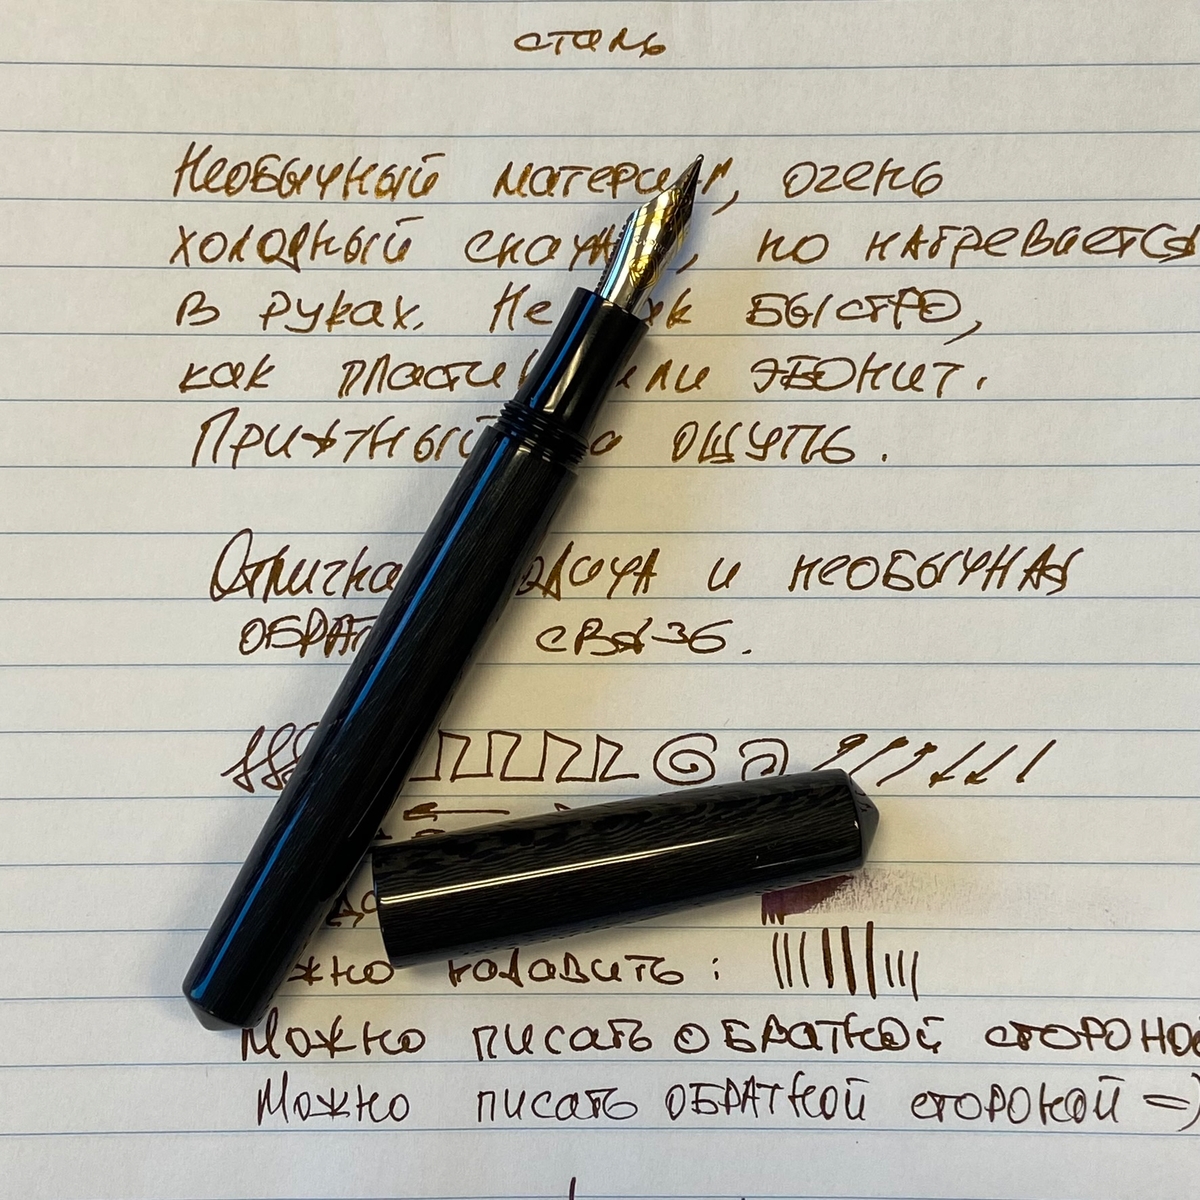 сталь
Необычный материал, очень
холодный снаружи, но нагревается
в руках. Не так быстро,
как пластик или эбонит.
Приятный на ощупь.
Отличная подача и необычная
обратная связь.
можно надавить:
Можно писать обратной стороной
Можно писать обратной стороной =)